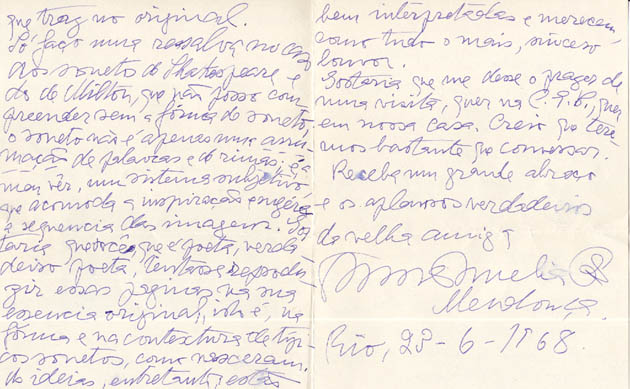 que traz no original.
Só faço uma ressalva no caso
dos sonetos de Shakespeare e
do de Milton, que não posso com
preender sem a fórma do soneto;
o soneto não é apenas uma arru-
mação de palavras e de rimas; é, a
meu vêr, um sistema subjetivo
que acomoda a inspiração e
a sequencia das imagens. Gos
taria que você, que é poeta, verda
deiro poeta, tentasse reprodu
zir essas paginas na sua
essencia original, isto é, na
fórma e na contextura de
sonetos, como nasceram.
As ideias, entretanto, estão
bem interpretadas e merecem
como tudo o mais, sincero
louvor.
Gostaria que me desse o prazer de
uma visita, quer na C.E.B., quer
em nossa casa. Creio que tere-
mos bastante que conversar.
Receba um grande abraço
e os aplausos verdadeiros
da velha amiga
Anna Amelia
Mendonça.
Rio, 28-6-1968.